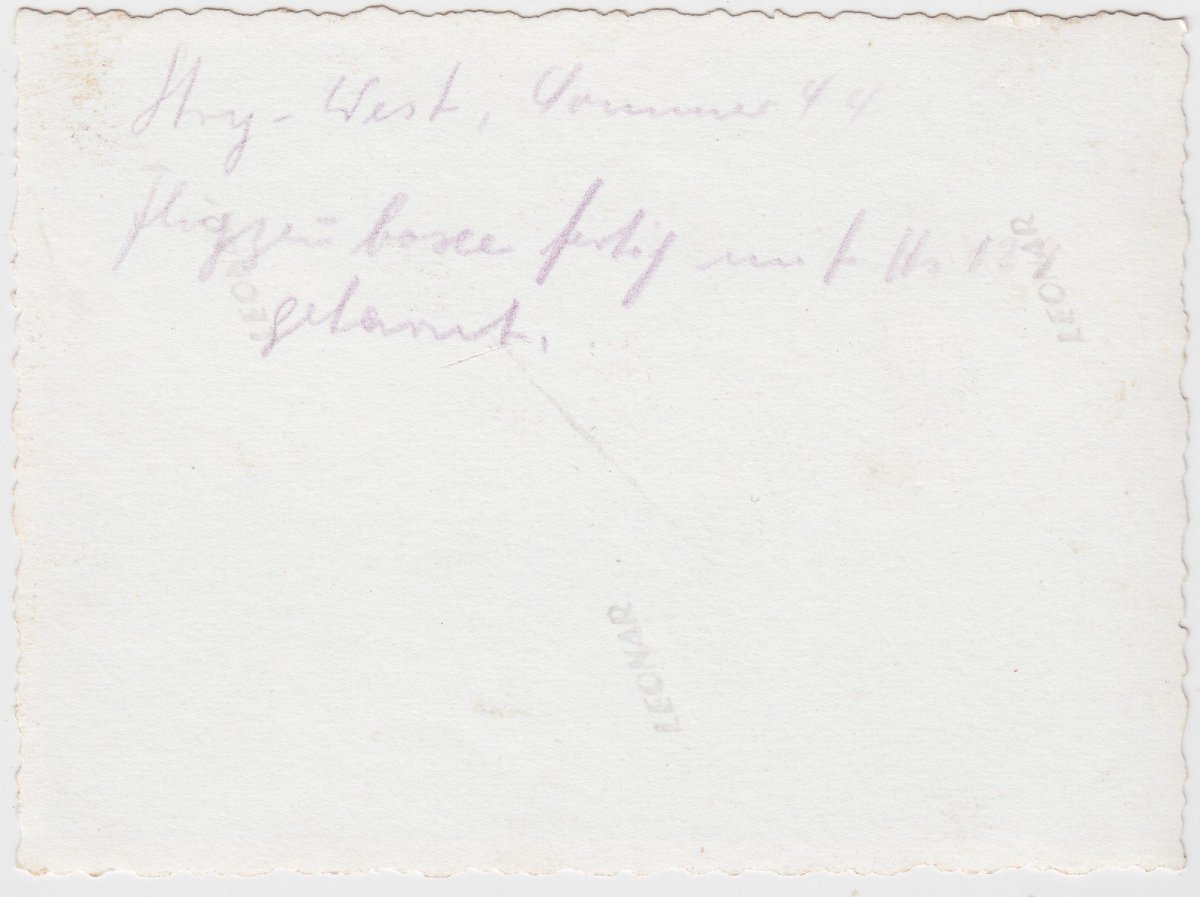 Stry - West, Sommer 44
Flugzeugboxe fertig mit Hs 129
getarnt.
LEONAR
LEONAR
LEONAR